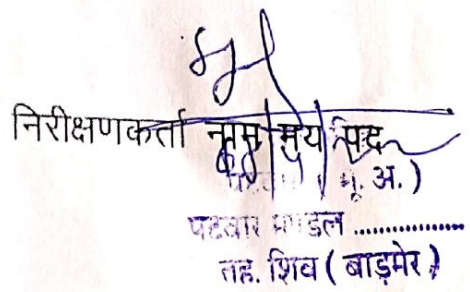 निरीक्षणकर्ता नाम मय पद
भू. अ. )
पटवार मण्डल ..................
तह. शिव ( बाड़मेर )